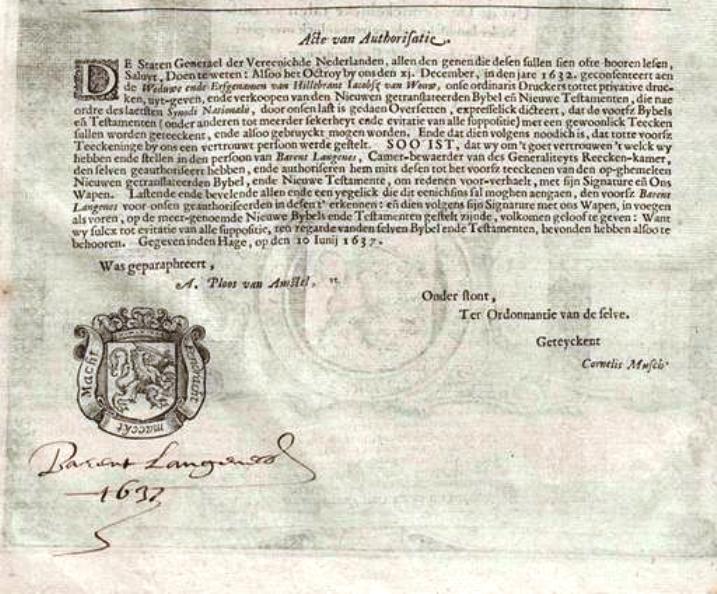 Acte van Authorisatie.
DE Staten Generael der Vereenichde Nederlanden, allen den genen die desen sullen sien ofte hooren lesen,
Saluyt, Doen te weten: Alsoo het Octroy by ons den xj. December, in den jare 1632. geconsenteert aen
de Weduwe ende Erfgenamen van Hillebrant Iacobsz van Wouw, onse ordinaris Druckers tot het privative druc-
ken, uyt-geven, ende verkoopen van den Nieuwen getranslateerden Bybel eñ Nieuwe Testamenten, die nae
ordre des laetsten Synodi Nationalis, door onsen last is gedaen Oversetten, expresselick dicteert, dat de voorsz Bybels
eñ Testamenten (onder anderen tot meerder sekerheyt ende evitatie van alle suppositie) met een gewoonlick Teecken
sullen worden geteeckent, ende alsoo gebruyckt mogen worden. Ende dat dien volgens noodich is, dat totte voorsz
Teeckeninge by ons een vertrouwt persoon werde gestelt. SOO IST, dat wy om 't goet vertrouwen 't welck wy
hebben ende stellen in den persoon van Barent Langenes, Camer-bewaerder van des Generaliteyts Reecken-kamer,
den selven geauthoriseert hebben, ende authoriseren hem mits desen tot het voorsz teeckenen van den op-ghemelten
Nieuwen getranslateerden Bybel, ende Nieuwe Testamente, om redenen voor-verhaelt, met sijn Signature eñ Ons
Wapen. Lastende ende bevelende allen ende een yegelick die dit eenichsins sal mogen aengaen, den voorsz Barent
Langenes voor onsen geauthoriseerden in desen t' erkennen: eñ dien volgens sijn Signature met ons Wapen, in voegen
als voren, op de meer-genoemde Nieuwe Bybels ende Testamenten gestelt zijnde, volkomen geloof te geven: Want
wy sulcx tot evitatie van alle suppositie, ten regarde van den selven Bybel ende Testamenten, bevonden hebben alsoo te
behooren. Gegeven inden Hage, op den 10 Iunij 1637.
Was geparaphreert,
A. Ploos van Amstel, vt.
Onder stont,
Ter Ordonnantie van de selve.
Geteyckent
Cornelis Musch.
Macht
maeckt
Barent Langenes
1637